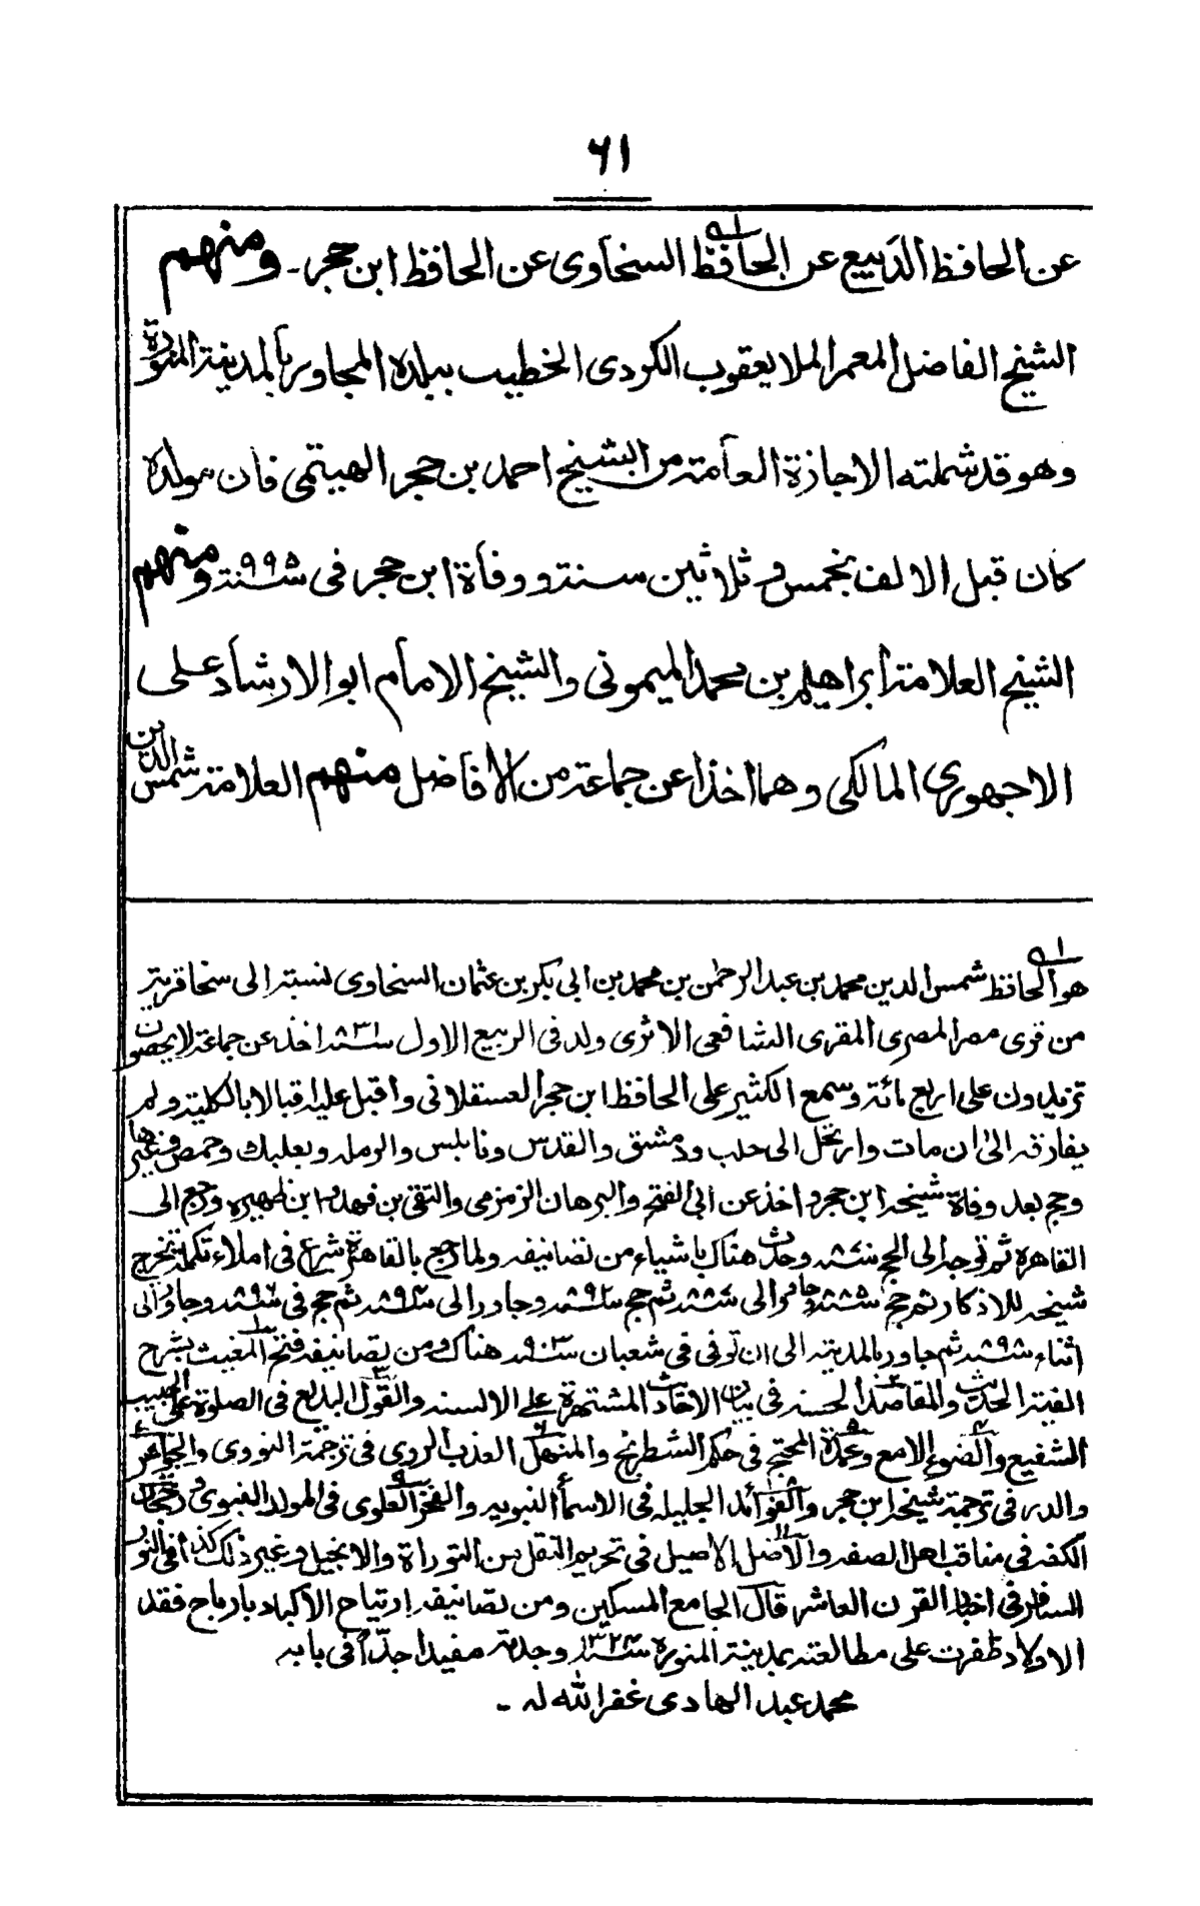 ٦١
عن الحافظ الدَيبع عن الحافظ السخاوى عن الحافظ ابن حجر ـ ومنهم
الشيخ الفاضل المعمر الملا يعقوب الكردى الخطيب ببلده المجاور بالمدينة المنورة
وهو قد شملته الاجازة العامة من الشيخ احمد بن حجر الهيتمى فان مولده
كان قبل الالف بخمس و ثلاثين سنة ووفاة ابن حجر فى سنة ٩٩٥ ومنهم
الشيخ العلامة ابراهيم بن محمد الميمونى والشيخ الامام ابو الارشاد على
الاجهورى المالكى وهما اخذا عن جماعة من الافاضل منهم العلامة شمس الدين بن
١ه هو الحافظ شمس الدين محمد بن عبد الرحمن بن محمد بن ابى بكر بن عثمان السخاوى نسبة الى سخا قرية
من قرى مصر المصرى المقرى الشافعى الاثرى ولد فى الربيع الاول سنة ٨٣١ اخذ عن جماعة لا يحصون
تزيدون على اربع مائة وسمع الكثير على الحافظ ابن حجر العسقلانى واقبل عليه اقبالا بالكلية ولم
يفارقه الى ان مات وارتحل الى حلب ودمشق والقدس ونابلس والرمله وبعلبك وحمص وغيرها
وحج بعد وفاة شيخه ابن حجر واخذ عن ابى الفتح والبرهان الزمزمى والتقى بن فهد وابن ظهيره ورجع الى
القاهرة ثم توجه الى الحج سنة وحدث هناك باشياء من تصانيفه ولما رجع بالقاهرة شرع فى املاء تكملة تخريج
شيخه للاذكار ثم حج وجاور الى ثم حج سنة ٨٩٢ وجاور الى سنة ٨٩٤ ثم حج فى سنة وجاور الى
اثناء سنة ٨٩٨ ثم جاور بالمدينه الى ان توفى فى شعبان سنة ٩٠٢ هناك ومن تصانيفه فتح المغيث بشرح
الفية الحديث والمقاصد الحسنه فى بيان الاحاديث المشتهرة على الالسنه والقول البديع فى الصلوة على الحبيب
الشفيع والضوء الامع وعمدة المحتج فى حكم الشطرنج والمنهل العذب الروى فى ترجمة النووى والجواهر
والدرر فى ترجمة شيخه ابن حجر والفوائد الجليله فى الاسماء النبويه والفخر العلوى فى المولد النبوى ورجحان
الكفه فى مناقب اهل الصفه والاصل الاصيل فى تحريم النقل من التوراة والانجيل وغير ذلك كذا فى النور
السافر فى اخبار القرن العاشر قال الجامع المسكين ومن تصانيفه ارتياح الاكباد بارباح فقد
الاولاد ظفرت على مطالعته بمدينة المنوره سنة ١٣٢٤ وجدته مفيدا جدّا فى بابه
محمد عبد الهادى غفر الله له ـ